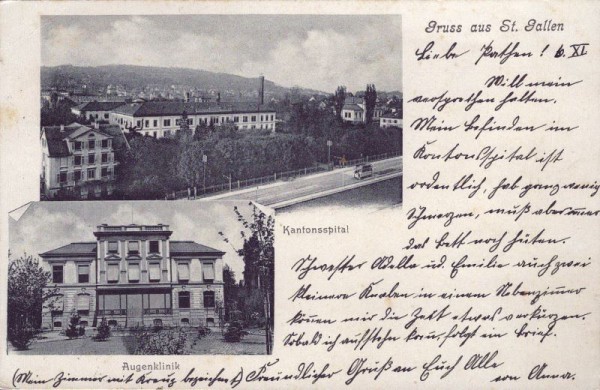 Gruss aus St. Gallen
Liebe Pathen! 6. XI
Will mein
versprechen halten.
Mein Befinden im
Kantonsspital ist
ordentlich, hab ganz wenig
Schmerzen, muß aber immer
das Bett noch hüten.
Schwester Adella ud. Emilie auch zwei
kleinere Knaben in einem Nebenzimmer
können mir die Zeit etwas verkürzen.
Sobald ich aufstehen kann, folgt ein Brief.
Freundlicher Gruß an Euch Alle
von Anna.
Kantonsspital
Augenklinik
(Mein Zimmer mit Kreuz bezeichnet)